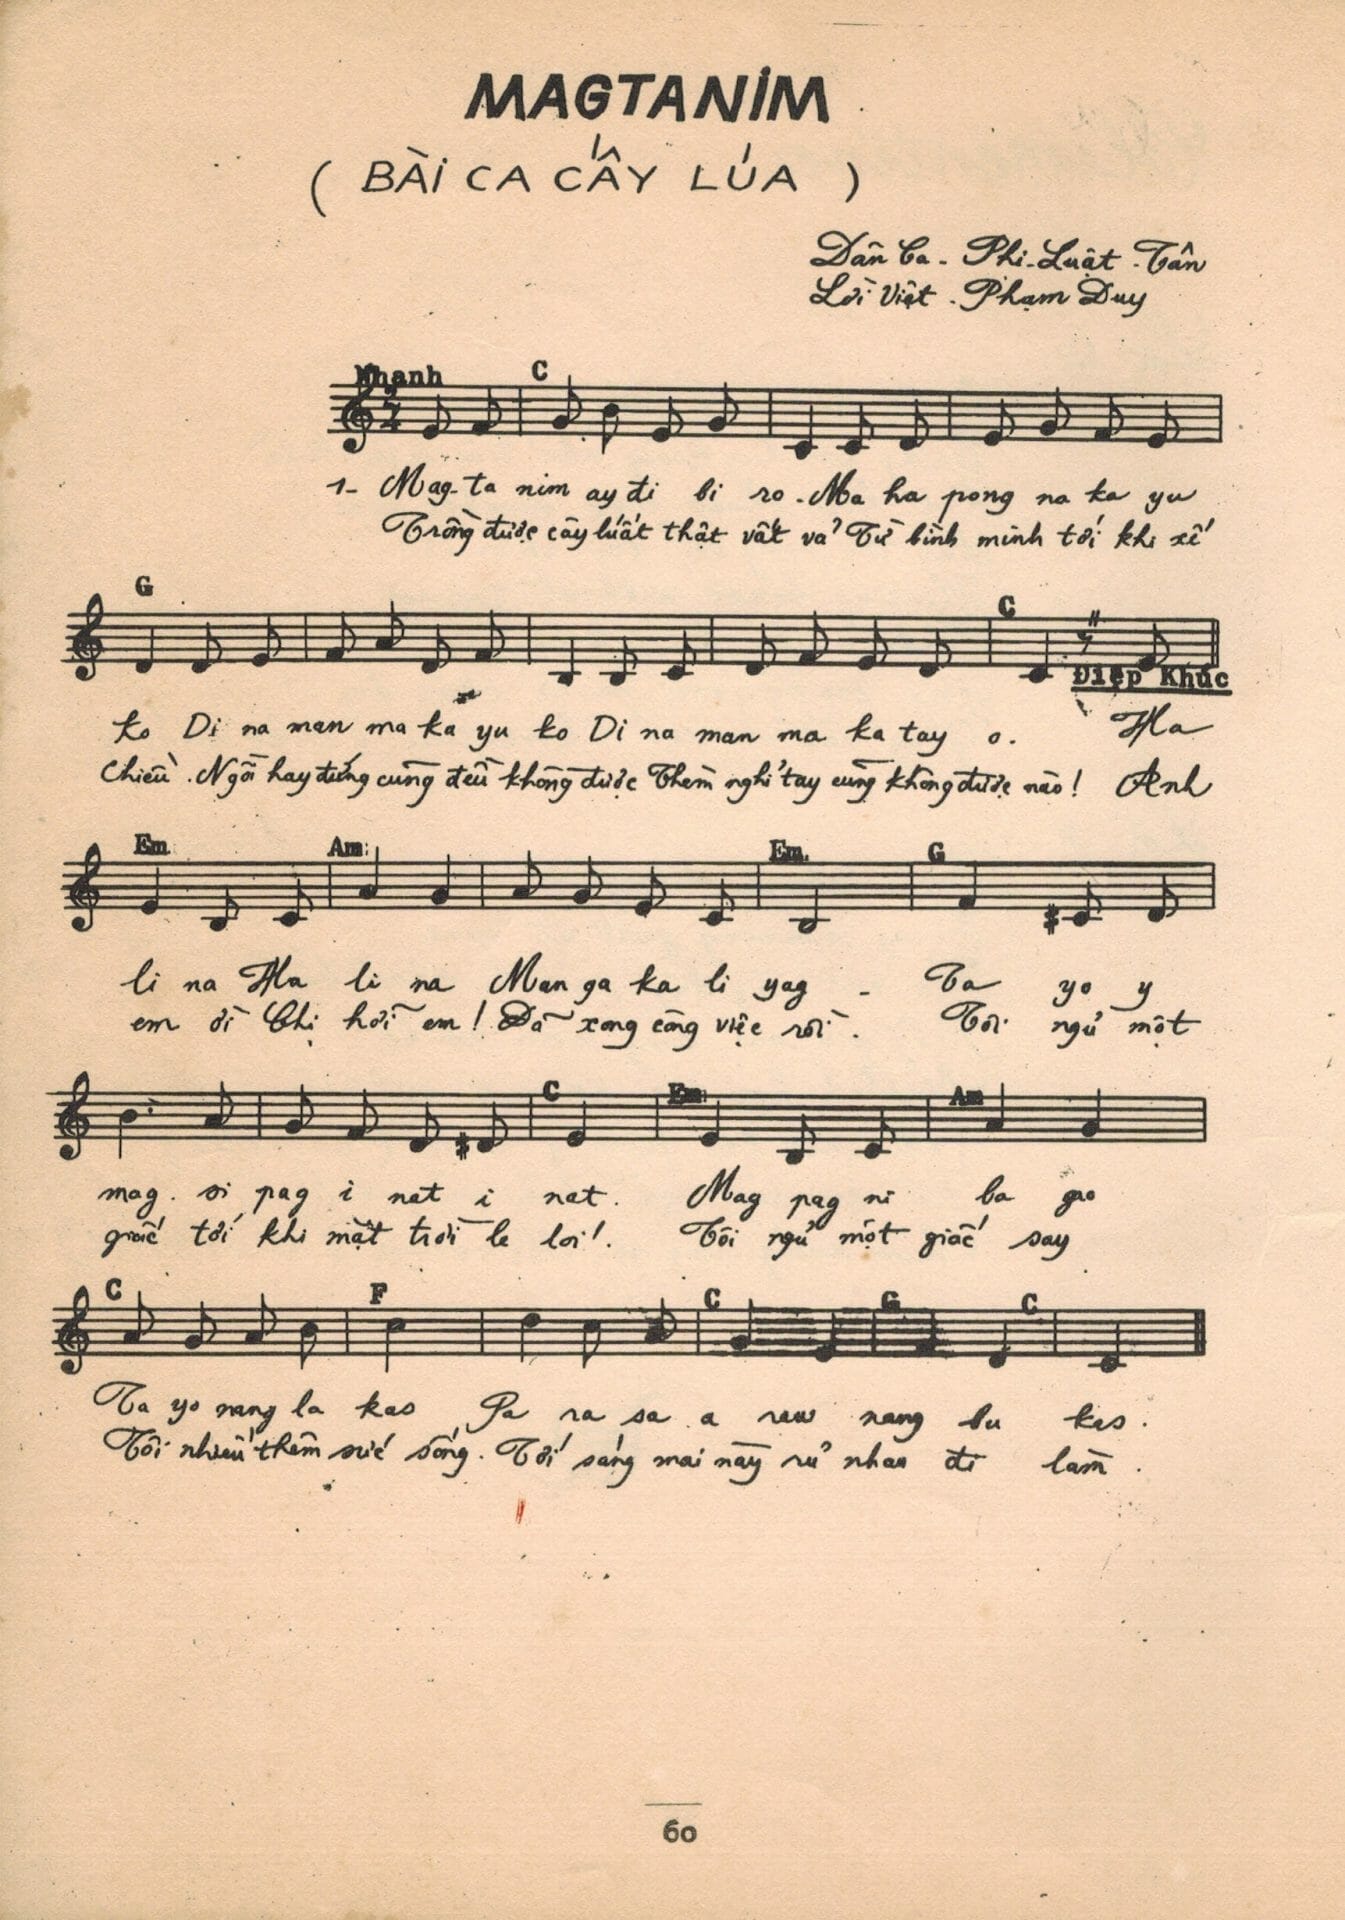 MAGTANIM
( BÀI CA CẤY LÚA )
Dân Ca - Phi-Luật-Tân
Lời Việt - Phạm Duy
Nhanh C
1- Mag-ta nim ay đi bi ro - Ma ha pong na ka yu
Trồng được cây lúa thật vất vả Từ bình minh tới khi xế
G C
Điệp Khúc
ko Di na man ma ka yu ko Di na man ma ka tay o. Ha
Chiều. Ngồi hay đứng cũng đều không được Thèm nghỉ tay cũng không được nào! Anh
Em Am Em G
li na Ha li na Man ga ka li yag - Ta yo y
em ơi Chị hỡi em! Đã xong công việc rồi. Tôi ngủ một
C Em Am
mag. si pag i nat i nat. Mag pag ni ba gao
giấc tới khi mặt trời le lói! Tôi ngủ một giấc say
C F C G C
Ta yo nang la kas Pa ra sa a raw nang bu kas.
Tôi nhiều thêm sức sống. Tới sáng mai này rủ nhau đi làm.
60